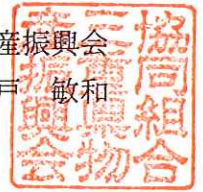 産振興会
戸 敏和
協同組合
三重県物
産振興会